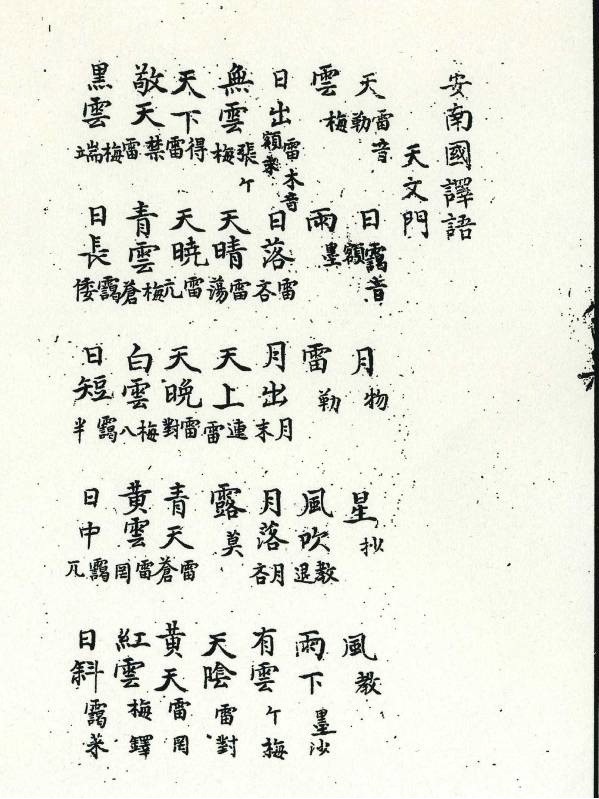 安南國譯語
天文門
天 雷音勒 日 靄音額 月 物 星 抄 風 教
雲 梅 雨 墨 雷 勒 風吹 教退 雨下 墨沙
日出 雷木音額 日落 雷吝 月出 月末 月落 月吝 有雲 ケ梅
無雲 張ケ梅 天晴 雷蕩 天上 連雷 露 莫 天陰 雷對
天下 得雷 天曉 雷亢 天晚 雷對 青天 雷蒼 黄天 雷罔
敬天 禁雷 青雲 梅蒼 白雲 梅八 黄雲 雷罔 紅雲 梅鐸
黑雲 梅端 日長 靄倭 日短 靄半 日中 靄兀 日斜 靄